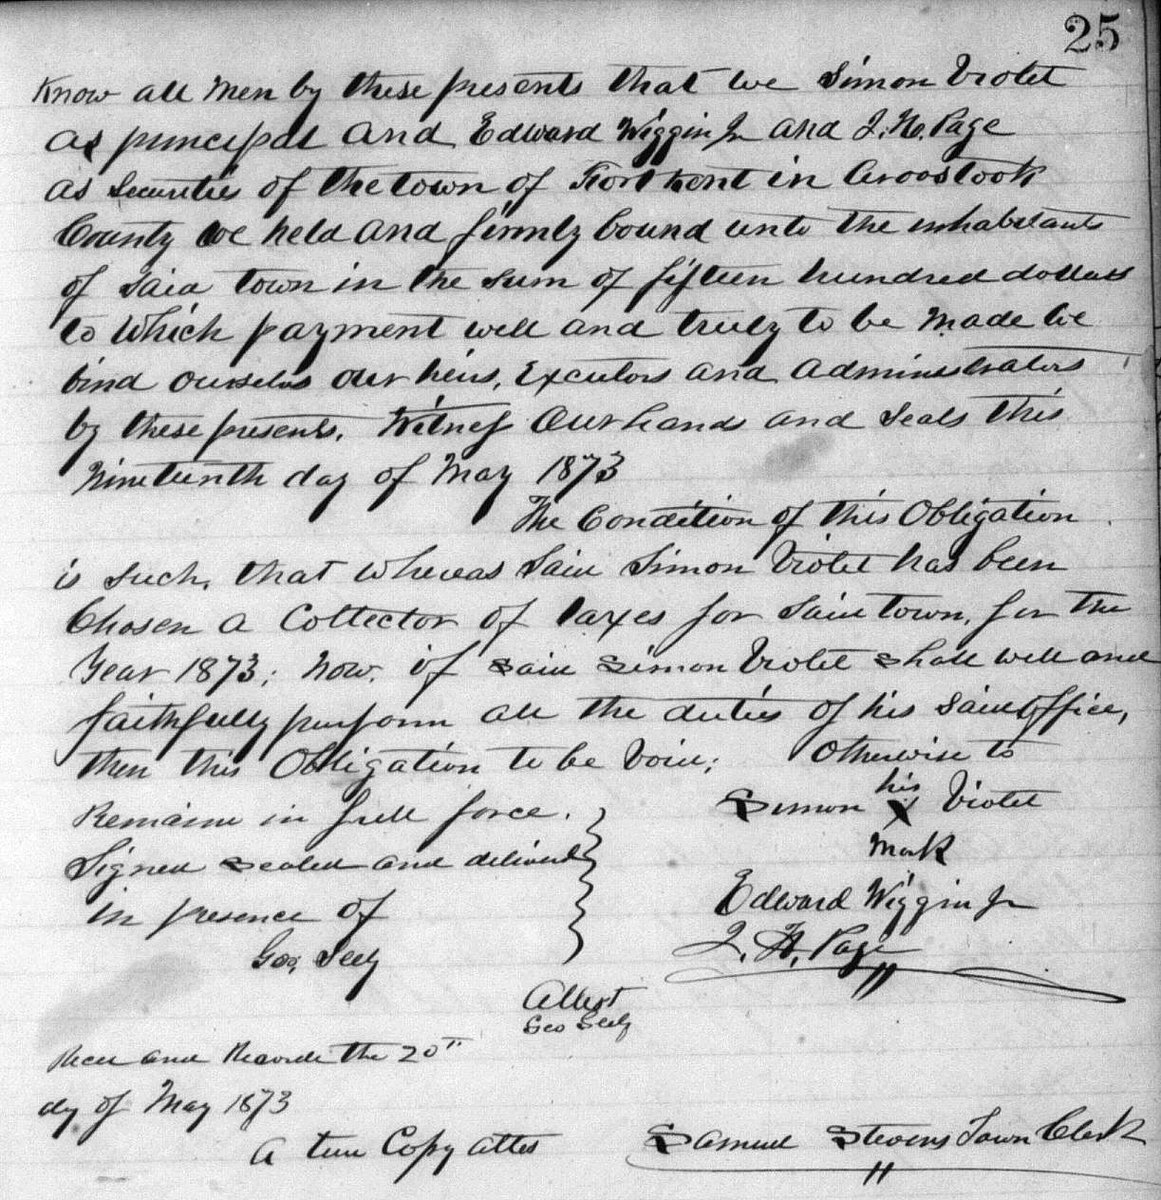 25
Know all Men by these presents that we Simon Violet
as principal and Edward Wiggin Jr and J. H. Page
as Securities of the town of Fort Kent in Aroostook
County we held and firmly bound unto the inhabitants
of said town in the sum of fifteen hundred dollars
to Which payment well and truly to be Made We
bind ourselves our heirs, Executors and administrators
by these presents. Witness Our hands and Seals this
Nineteenth day of May 1873
The Condition of this Obligation
is such, that whereas Said Simon Violet has been
Chosen a Collector of taxes for Said town, for the
Year 1873; Now, if said Simon Violet shall well and
faithfully perform all the duties of his said Office,
then this Obligation to be Void; Otherwise to
Remain in full force.
Signed sealed and delivered
in presence of
Geo, Seely
Simon his X Violet
Mark
Edward Wiggin Jr
J. H. Page
Attest
Geo Seely
Recd and Recorded the 20"
dy of May 1873
A true Copy attest
Samuel Stevens Town Clerk